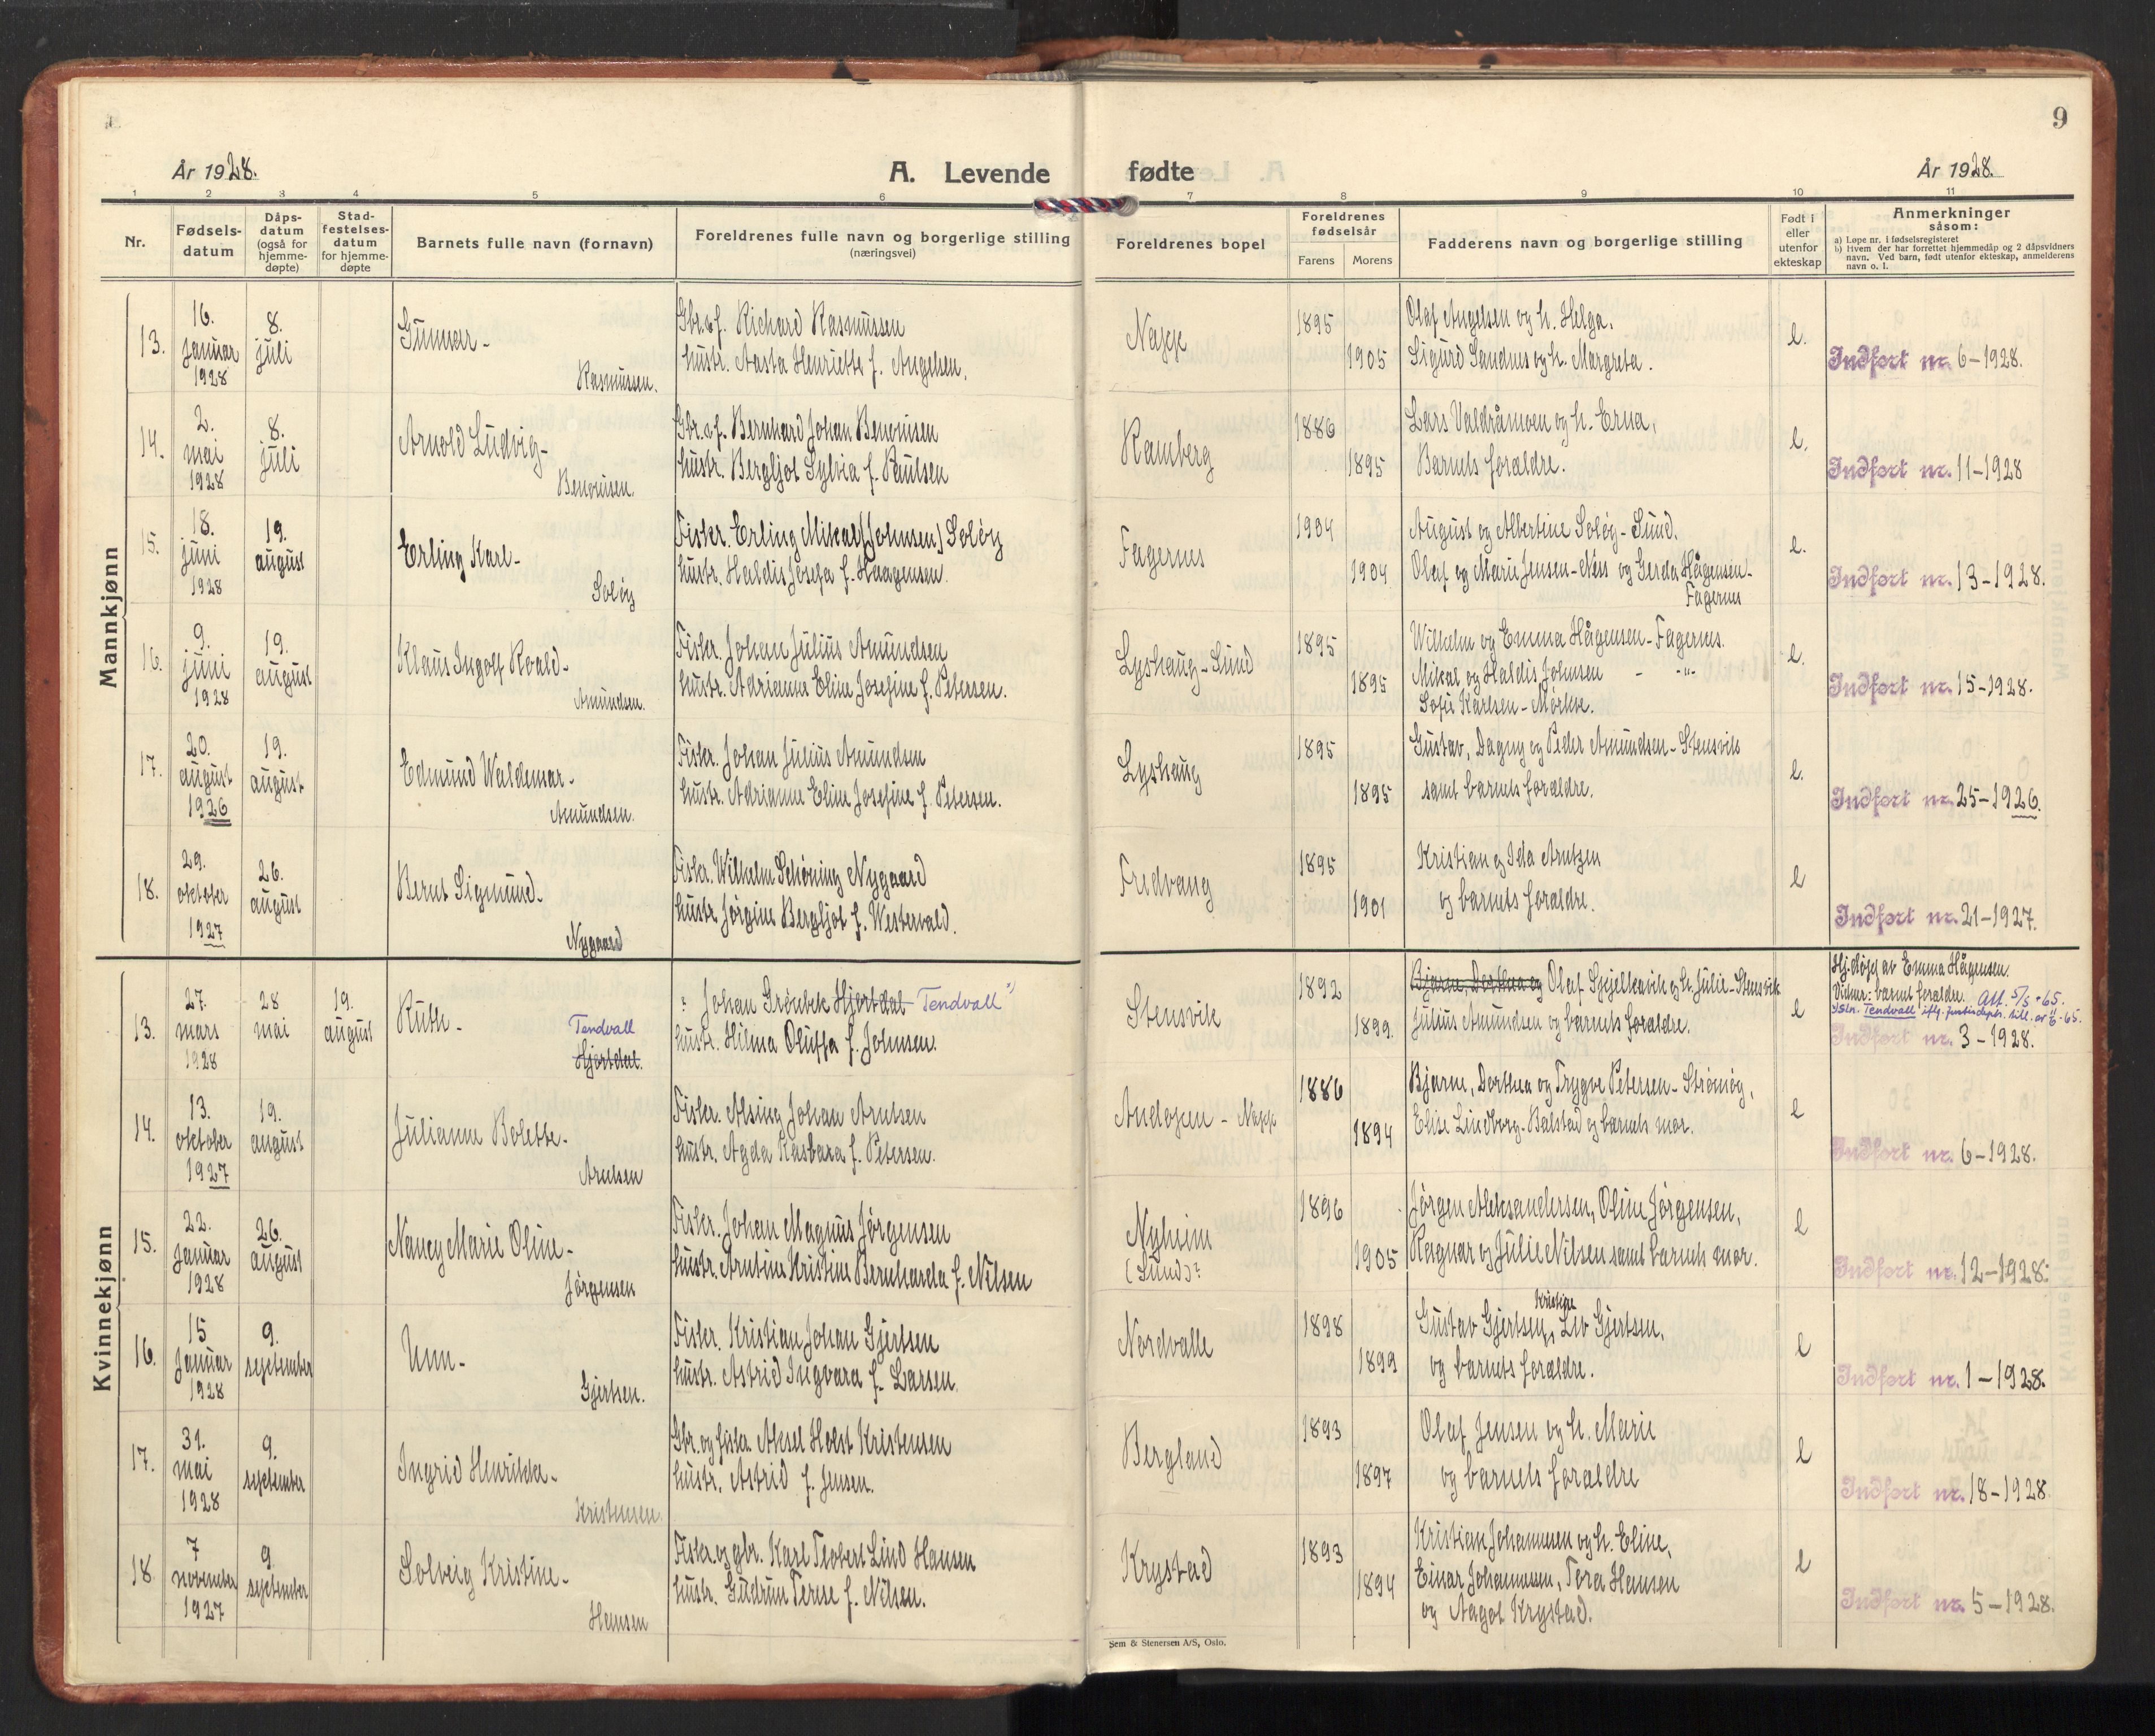 9
År 1928.
A. Levende fødte
År 1928.
1 2 3 4 5 6 7 8 9 10 11
Nr.
Fødsels-
datum
Dåps-
datum
(også for
hjemme-
døpte)
Stad-
festelses-
datum
for hjemme-
døpte
Barnets fulle navn (fornavn)
Foreldrenes fulle navn og borgerlige stilling
(næringsvei)
Foreldrenes bopel
Foreldrenes
fødselsår
Farens Morens
Fadderens navn og borgerlige stilling
Født i
eller
utenfor
ekteskap
Anmerkninger
såsom:
a) Løpe nr. i fødselsregisteret
b) Hvem der har forrettet hjemmedåp og 2 dåpsvidners
navn. Ved barn, født utenfor ekteskap, anmelderens
navn o. l.
Mannkjønn
13.
16.
januar
1928
8.
juli
Gunnar-
Rasmussen.
Gbr. & f. Richard Rasmussen
hustr. Aasta Henriette f. Angelsen.
Napp
1895
1905
Olaf Angelsen og h. Helga.
Sigurd Sandnes og h. Margreta.
e.
Indført nr. 6-1928.
14.
2.
mai
1928
8.
juli
Arnold Ludvig-
Benonisen.
Gbr. & f. Bernhard Johan Benonisen
hustr. Bergljot Sylvia f. Paulsen
Ramberg
1886
1895
Lars Valdråmoen og h. Erna,
Barnets foreldre.
e.
Indført nr. 11-1928
15.
18.
juni
1928
19.
august
Erling Karl-
Soløy
Fisker. Erling Mikal (Johnsen) Soløy
hustr. Haldis Josefa f. Haagensen.
Fagernes
1904
1904
August og Albertine Soløy-Sund.
Olaf og Marie Jensen-Ness og Gerda Hågensen-
Fagernes
e.
Indført nr. 13-1928.
16.
9.
juni
1928
19.
august
Klaus Ingolf Roald-
Amundsen.
Fisker. Johan Julius Amundsen
hustr. Adrianne Eline Josefine f. Petersen.
Lyshaug-Sund
1895
1895
Wilhelm og Emma Hågensen-Fagernes.
Mikal og Haldis Johnsen - -"-
Sofie Karlsen-Mørkk.
e.
Indført nr. 15-1928.
17.
20.
august
1926
19.
august
Edmund Waldemar-
Amundsen.
Fisker. Johan Julius Amundsen
hustr. Adrianne Eline Josefine f. Petersen.
Lyshaug
1895
1895
Gustav, Dagny og Peder Amundsen-Stensvik
samt barnets foreldre.
e.
Indført nr. 25-1926.
18.
29.
oktober
1927
26.
august
Bernt Sigmund.
Nygaard
Fisker. Wilhelm Schøning Nygaard
hustr. Jørgine Bergljot f. Westervald.
Fredvang
1895
1901
Kristian og Ida Arntzen
og barnets foreldre.
e
Indført nr. 21-1927.
Kvinnekjønn
13.
27.
mars
1928
28
mai
19.
august
Ruth-
Tendvall
Hjertdal.
: Johan Grønbek Hjertdal Tendvall
hustr. Hilma Oluffa f. Johnsen.
Stensvik
1892
1899.
Bjarne, Dorthea og Olaf Spjelkavik og h. Julie-Stensvik
Julius Amundsen og barnets foreldre.
e
Hj. døpt av Emma Hågensen.
Vidner: barnets foreldre. Att. 5/5-65.
Indført nr. 3-1928.
14.
13.
oktober
1927
19.
august
Julianne Bolette-
Arntsen
Fisker. Alsing Johan Arntsen
hustr. Agda Rasbara f. Petersen.
Andopen-Napp
1886
1894
Bjarne, Dorthea og Trygve Petersen-Strømøy,
Elise Lindborg-Balstad og barnets mor.
e
Indført nr. 6-1928.
15.
22.
januar
1928
26.
august
Nancy Marie Oline-
Jørgensen
Fisker. Johan Magnus Jørgensen
hustr. Arntine Kristine Bernharda f. Nilsen
Nyheim
(Sund)?
1896
1905
Jørgen Aleksandersen, Oline Jørgensen,
Ragnar og Julie Nilsen samt barnets mor.
e
Indført nr. 12-1928.
16.
15
januar
1928
9.
september
Unn-
Gjertsen.
Fisker. Kristian Johan Gjertsen
hustr. Astrid Ingvara f. Larsen.
Nordvalle
1898
1899
Kristine
Gustav Gjertsen, Liv Gjertsen,
og barnets foreldre.
e
Indført nr. 1-1928.
17.
31.
mai
1928
9.
september
Ingrid Henrikke-
Kristensen.
Gbr. og fisker. Aksel Holst Kristensen
hustr. Astrid f. Jensen.
Bergland
1893
1897
Olaf Jensen og h. Marie
og barnets foreldre
e
Indført nr. 18-1928
18
7
november
1927
9.
september
Solveig Kristine-
Hansen
Fisker. og gbr. Karl Teobert Lind Hansen
hustr. Gudrun Terese f. Nilsen.
Krystad
1893
1894
Kristian Johannesen og h. Eline,
Einar Johannesen, Tora Hansen
og Aagot Krystad.
e
Indført nr. 5-1928.
Sem & Stenersen A/S, Oslo.